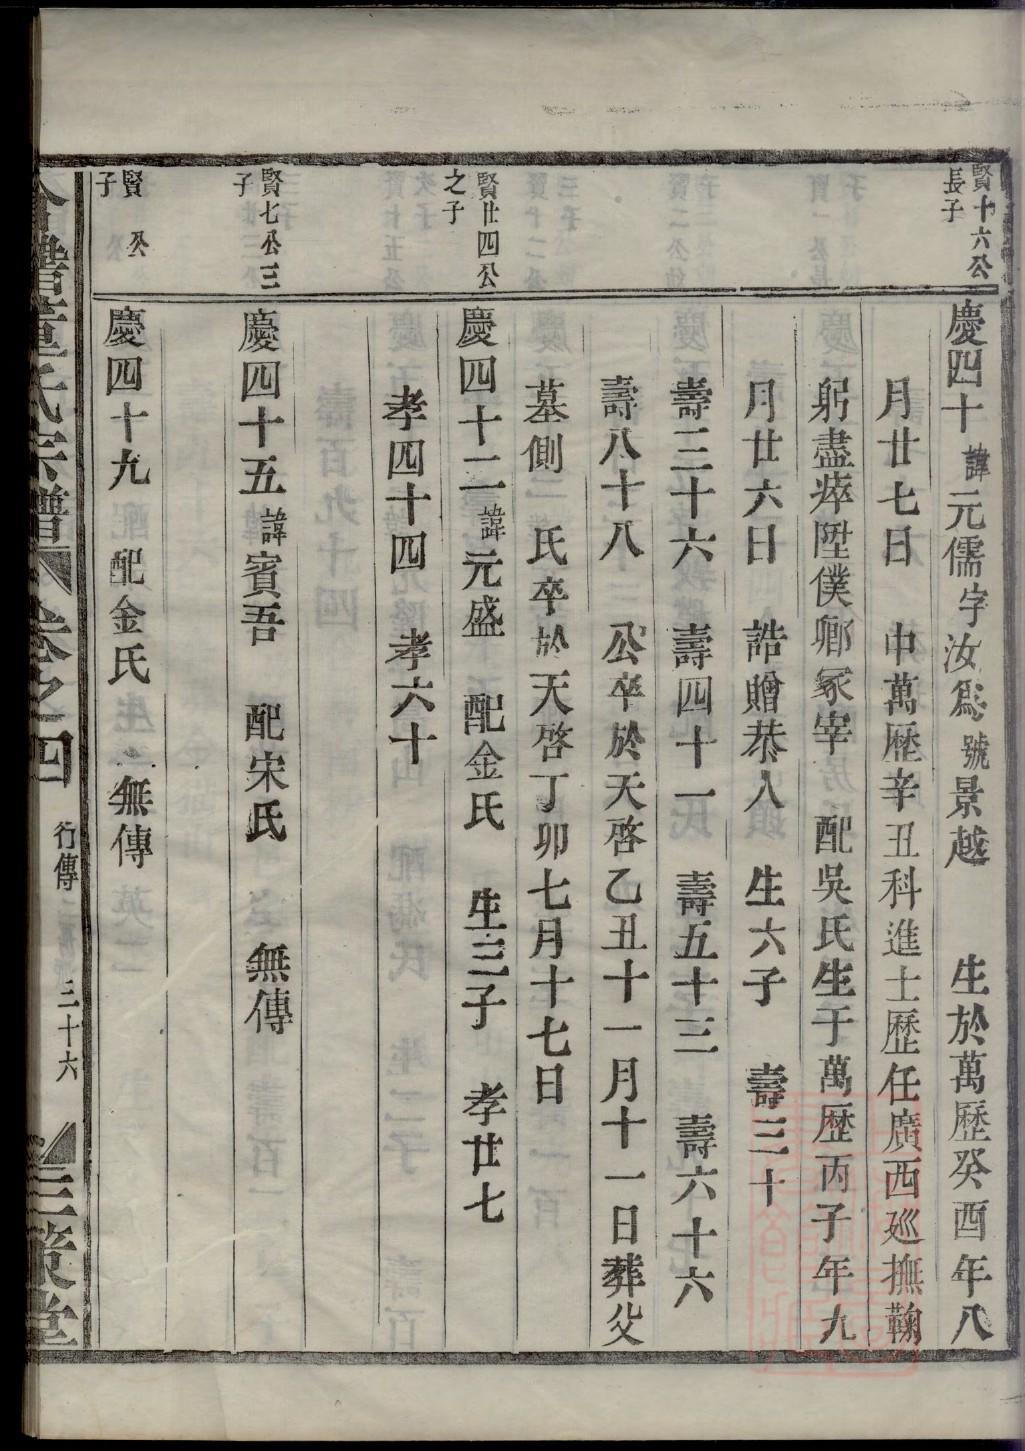 賢十六公
長子
慶四十諱元儒字汝為號景越 生於萬歷癸酉年八
月廿七日 中萬歷辛丑科進士歷任廣西廵撫鞠
躬盡瘁陞僕卿冢宰 配吳氏生于萬歷丙子年九
月廿六日 誥贈恭人 生六子 壽三十
壽三十六 壽四十一 壽五十三 壽六十六
壽八十八 公卒於天啓乙丑十一月十一日葬父
墓側 氏卒於天啓丁卯七月十七日
賢廿四公
之子
慶四十二諱元盛 配金氏 生三子 孝廿七
孝四十四 孝六十
賢七公三
子
慶四十五諱賓吾 配宋氏 無傳
賢 公
子
慶四十九 配金氏 無傳
董氏宗譜 卷之四 行傳 三十六 三策堂